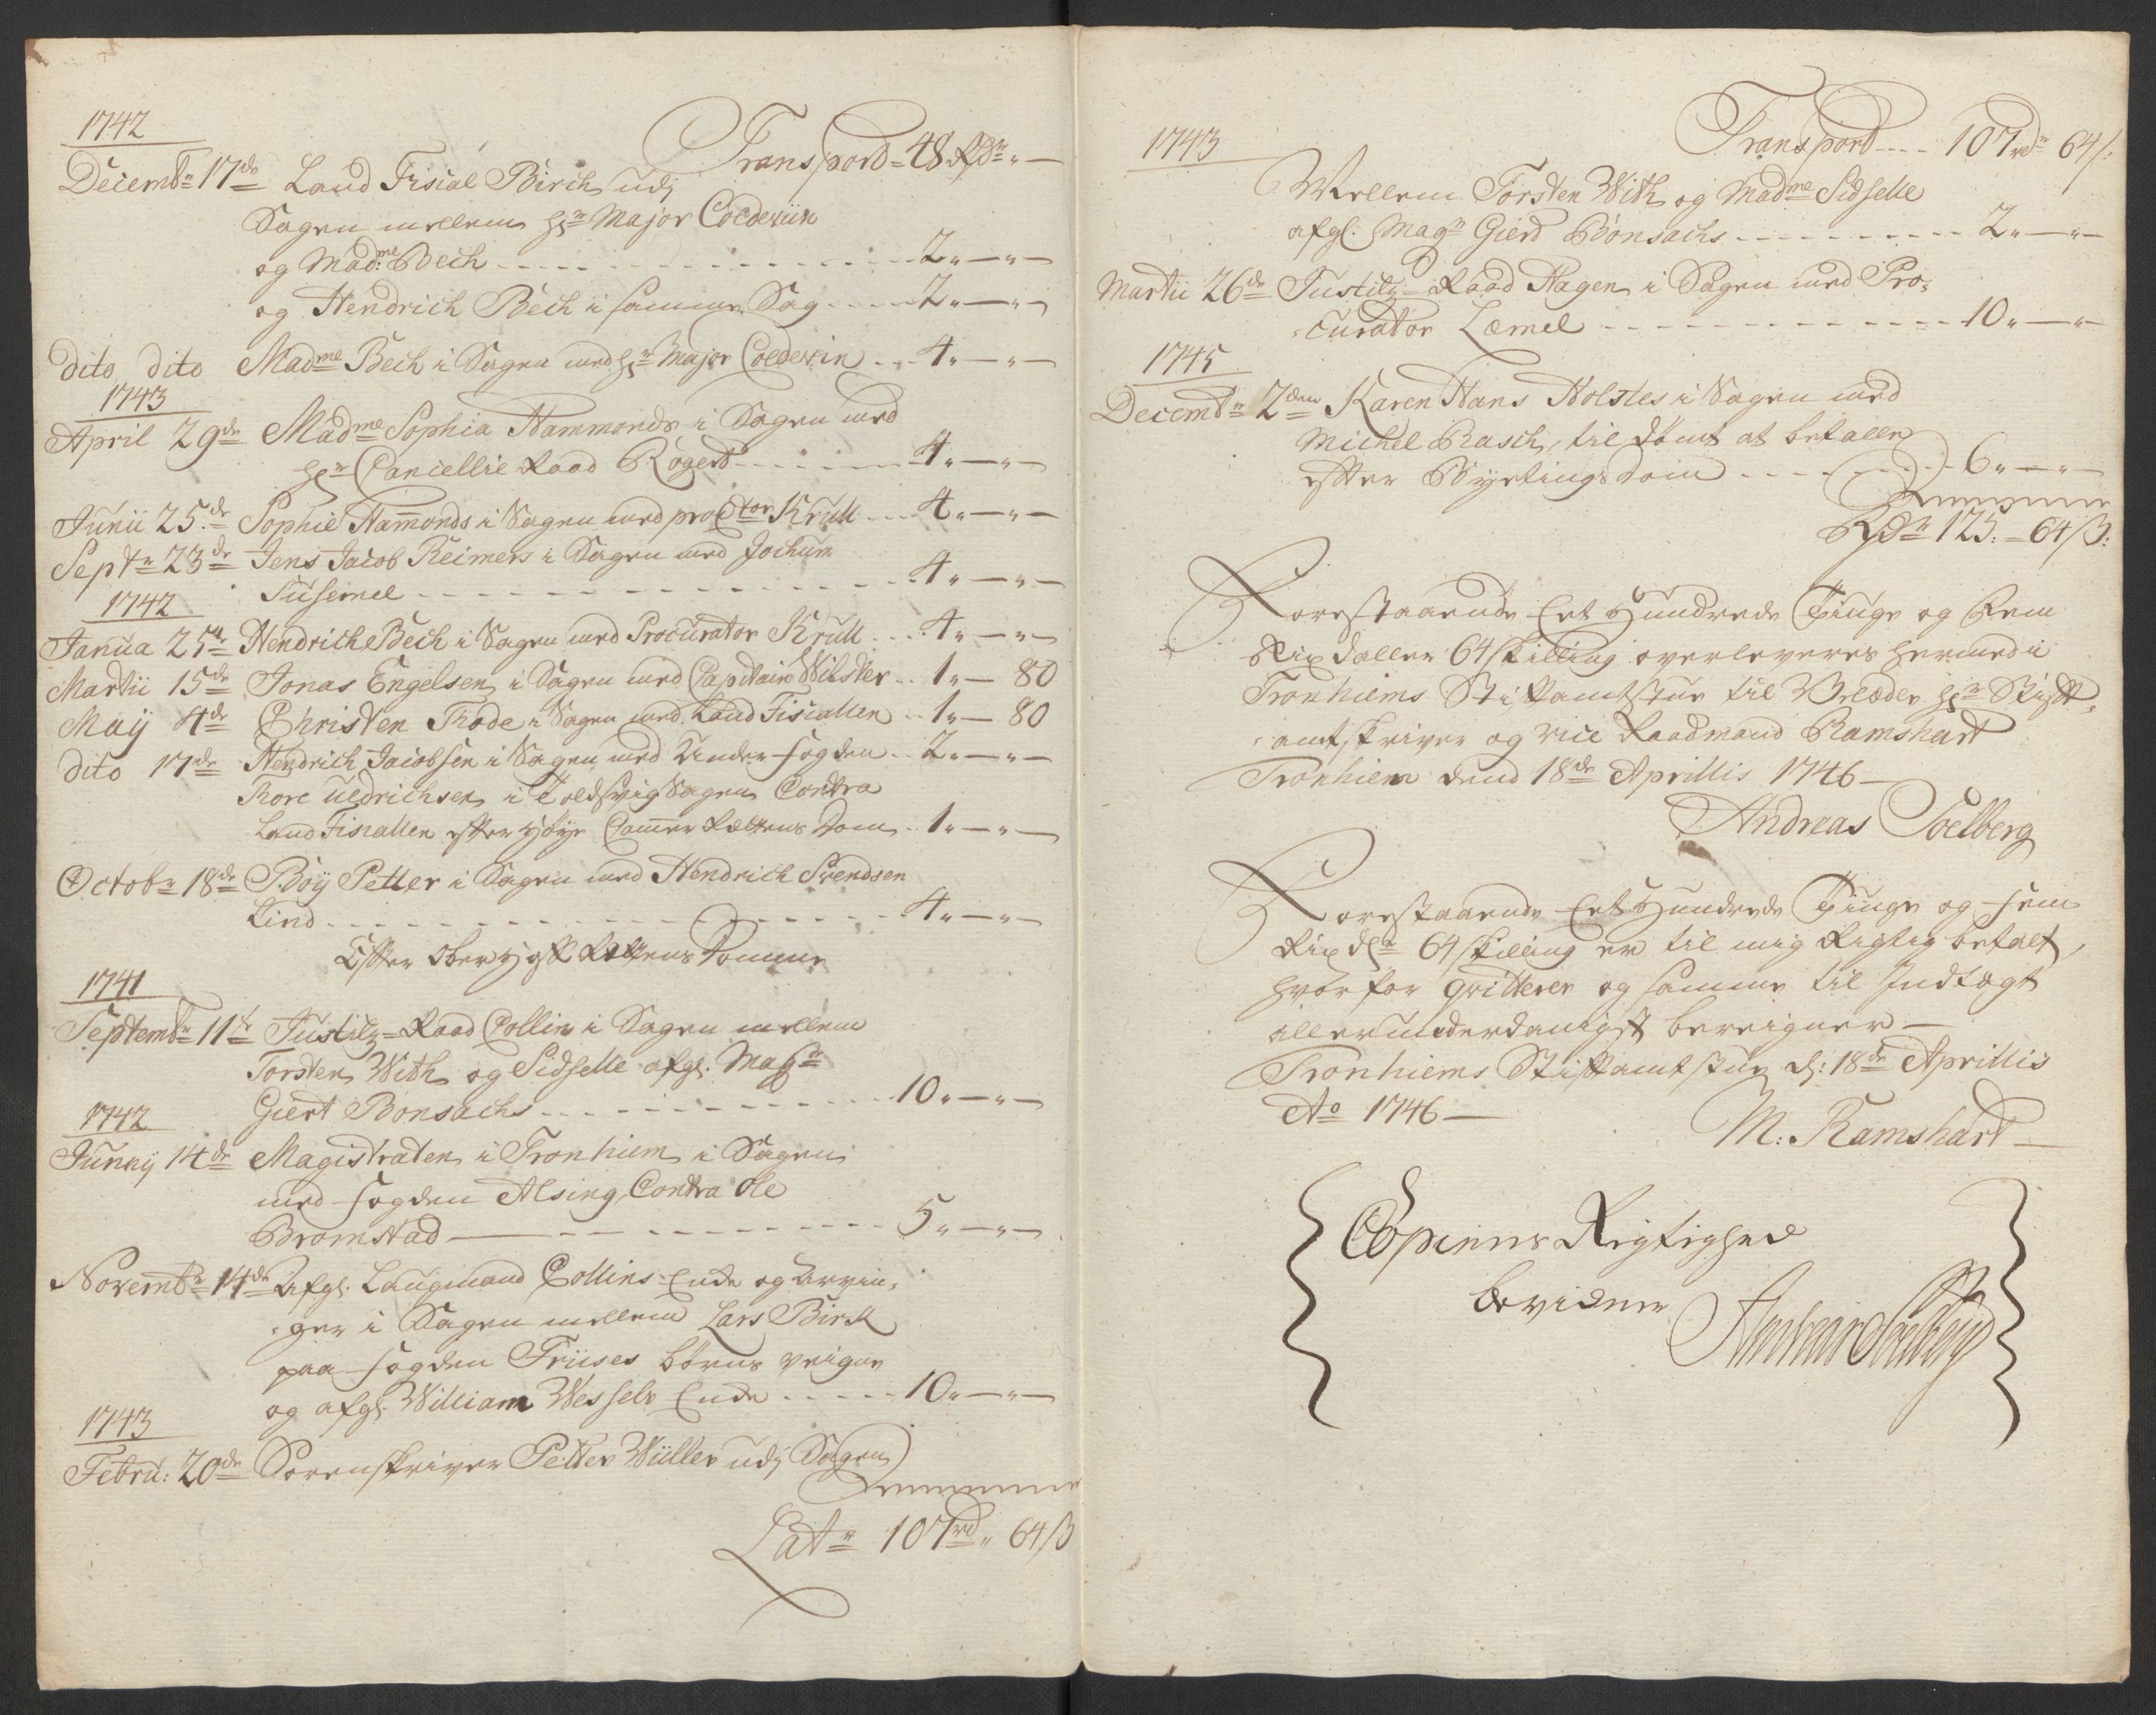 1742
Transpord = 48 Rdr „ —
Decembr 17de Land Fiscal Birch udj
Sagen mellem Hr Major Coldeviin
og Madme Bech - - - 2 „ — „ —
og Hendrich Bech i samme Sag - - - 2 „ — „ —
dito dito Madme Bech i Sagen med Hr Major Coldevin - - 4 „ — „ —
1743
April 29de Madme Sophia Hammonds i Sagen med
Hr Cancellie Raad Rogert - - - 4 „ — „ —
Junii 25de Sophie Hamonds i Sagen med proctor Krull - - - 4 „ — „ —
Septr 23de Jens Jacob Reimers i Sagen med Jochum
Susemel - - - 4 „ — „ —
1742
Janua 25de Hendrich Bech i Sagen med Procurator Krull - - - 4 „ — „ —
Martii 15de Jonas Engelsen i Sagen med Capitain Wibster - - 1 „ — 80
Maij 4de Christen Rode i Sagen med Land Fiscallen - - 1 „ — 80
dito 17de Hendrich Jacobsen i Sagen med Under fogden - - 2 „ — „ —
Tore Uldrichsen i Toldsvig Sagen Contra
Land Fiscallen efter Høye Camer Rættens Dom - - 1 „ — „ —
Octobr 18de Boÿ Petter i Sagen med Hendrich Svendsen
Lind - - - 4 „ — „ —
Efter Ober Hof Rættens Domme
1741
Septembr 11te Justitz=Raad Collin i Sagen mellem
Torsten With og Sidselle afgl. Magr
Giert Bonsachs - - - 10 „ — „ —
1742
Junny 14de Magistraten i Tronhiem i Sagen
med fogden Alsing Contra Ole
Bromstad — - - - 5 „ — „ —
Novembr 14de Afgl. Laugmand Collins Enke og Arvin=
=ger i Sagen mellem Lars Birch
paa fogden Friises børns veigne
og afgl. William Wessels Enke - - - 10 „ — „ —
1743
Febru: 20de Sorenskriver Petter Müller udj Sagen
Latr 107rd „ 64 ß
1743
Transpord - - - 107rdr 64 ß:
Mellem Torsten With og Madme Sidselle
afgl. Magr Gierd Bonsachs - - - 2 „ — „ —
Martii 26de Justitz=Raad Hagen i Sagen med Pro=
=curator Læmel - - - 10 „ — „ —
1745
Decembr 2den Karen Hans Holstes i Sagen med
Michel Rasch, til dømt at betalle
efter Byetings dom - - - 6 „ — „ —
Summa
Rdr 125: — 64 ß:
Forestaaende Eet Hundrede Tiuge og Fem
Rixdaller 64 skilling overleveres hermed i
Tronhiems Stiftamtstue til Velædle Hr Stift=
=amtskriver og vice Raadmand Ramshart
Tronhiem dend 18de Aprillis 1746 —
Andreas Soelberg
Forestaaende Eet Hundrede Tiuge og fem
Rixdlr 64 skilling er til mig Rigtig betalt,
hvorfor qvitterer og samme til Indtægt
allerunderdanigst bereigner —
Tronhiems Stiftamtstue d: 18de Aprillis
Ao 1746 —
M: Ramshart —
Copiens Rigtighed
bevidner
Andreas Soelberg